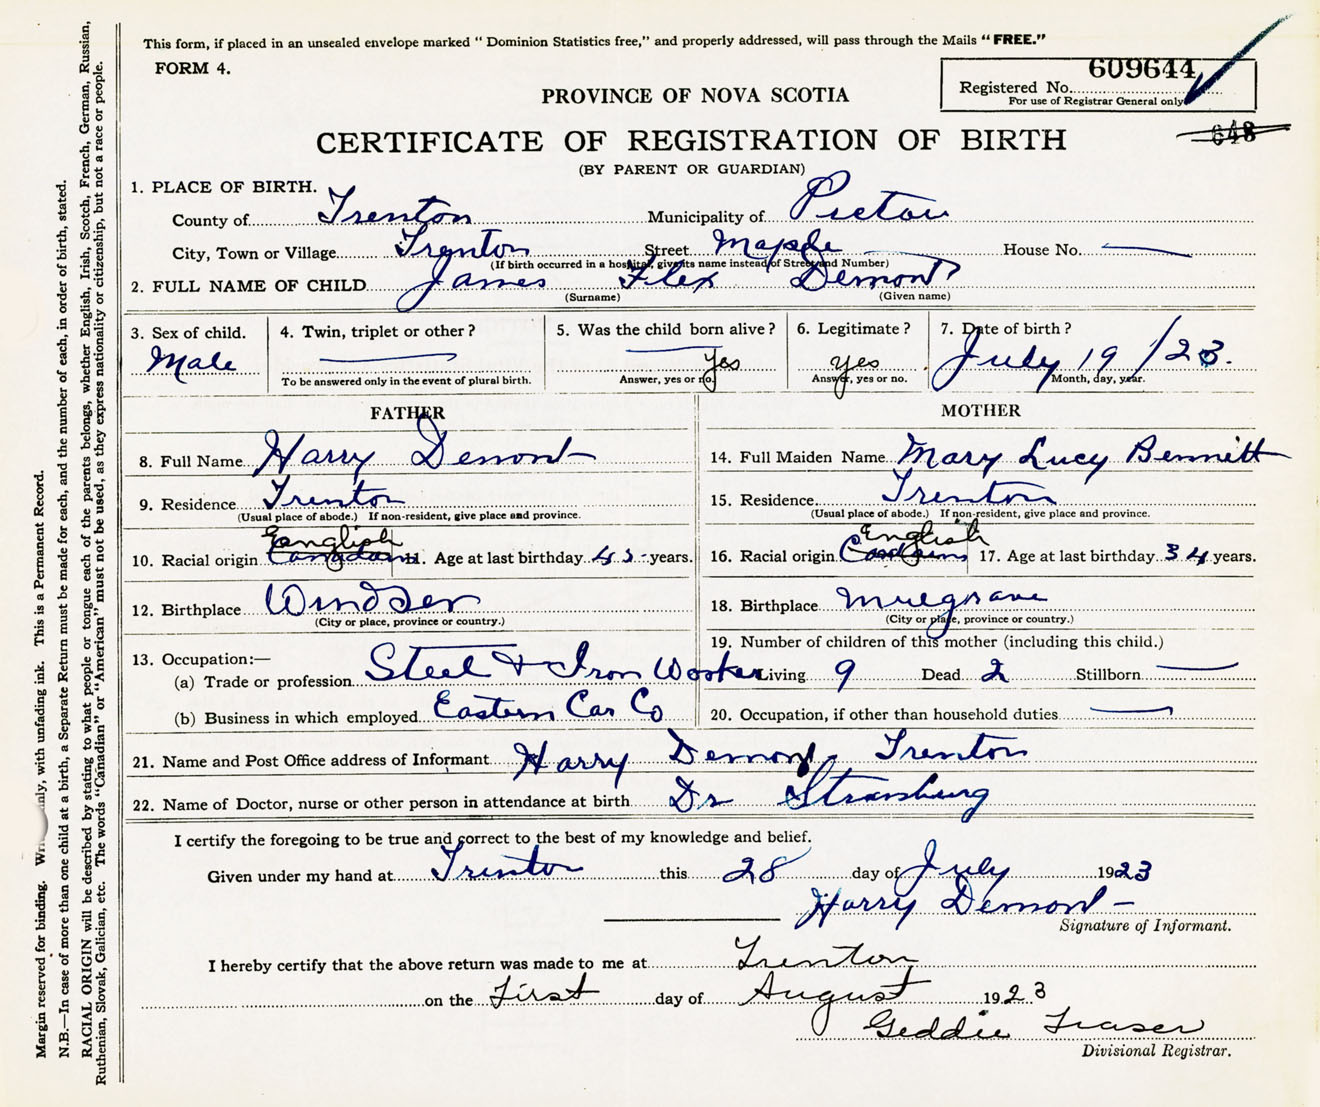 This form, if placed in an unsealed envelope marked “ Dominion Statistics free,” and properly addressed, will pass through the Mails “ FREE.”
FORM 4.
609644
Registered No.
For use of Registrar General only
PROVINCE OF NOVA SCOTIA
648
CERTIFICATE OF REGISTRATION OF BIRTH
(BY PARENT OR GUARDIAN)
1. PLACE OF BIRTH.
County of Trenton Municipality of Pictou
City, Town or Village Trenton Street Maple House No. —
(If birth occurred in a hospital, give its name instead of Street and Number)
2. FULL NAME OF CHILD James Flex Demont
(Surname) (Given name)
3. Sex of child. 4. Twin, triplet or other ? 5. Was the child born alive ? 6. Legitimate ? 7. Date of birth ?
Male — yes yes July 19 /23.
To be answered only in the event of plural birth. Answer, yes or no. Answer, yes or no. Month, day, year.
FATHER MOTHER
8. Full Name Harry Demont 14. Full Maiden Name Mary Lucy Bennitt
9. Residence Trenton 15. Residence Trenton
(Usual place of abode.) If non-resident, give place and province. (Usual place of abode.) If non-resident, give place and province.
English English
10. Racial origin 11. Age at last birthday years. 16. Racial origin 17. Age at last birthday 34 years.
12. Birthplace Windser 18. Birthplace Mulgrave
(City or place, province or country.) (City or place, province or country.)
19. Number of children of this mother (including this child.)
13. Occupation:—
(a) Trade or profession Steel & Iron Worker Living 9 Dead 2 Stillborn —
(b) Business in which employed Eastern Car Co 20. Occupation, if other than household duties —
21. Name and Post Office address of Informant Harry Demont Trenton
22. Name of Doctor, nurse or other person in attendance at birth Dr
I certify the foregoing to be true and correct to the best of my knowledge and belief.
Given under my hand at Trenton this 28 day of July 1923
Harry Demont
Signature of Informant.
I hereby certify that the above return was made to me at Trenton
on the First day of August 1923
Geddie Fraser
Divisional Registrar.
Margin reserved for binding. only, with unfading ink. This is a Permanent Record.
N.B.—In case of more than one child at a birth, a Separate Return must be made for each, and the number of each, in order of birth, stated.
RACIAL ORIGIN will be described by stating to what people or tongue each of the parents belongs, whether English, Irish, Scotch, French, German, Russian,
Ruthenian, Slovak, Galician, etc. The words “Canadian” or “American” must not be used, as they express nationality or citizenship, but not a race or people.